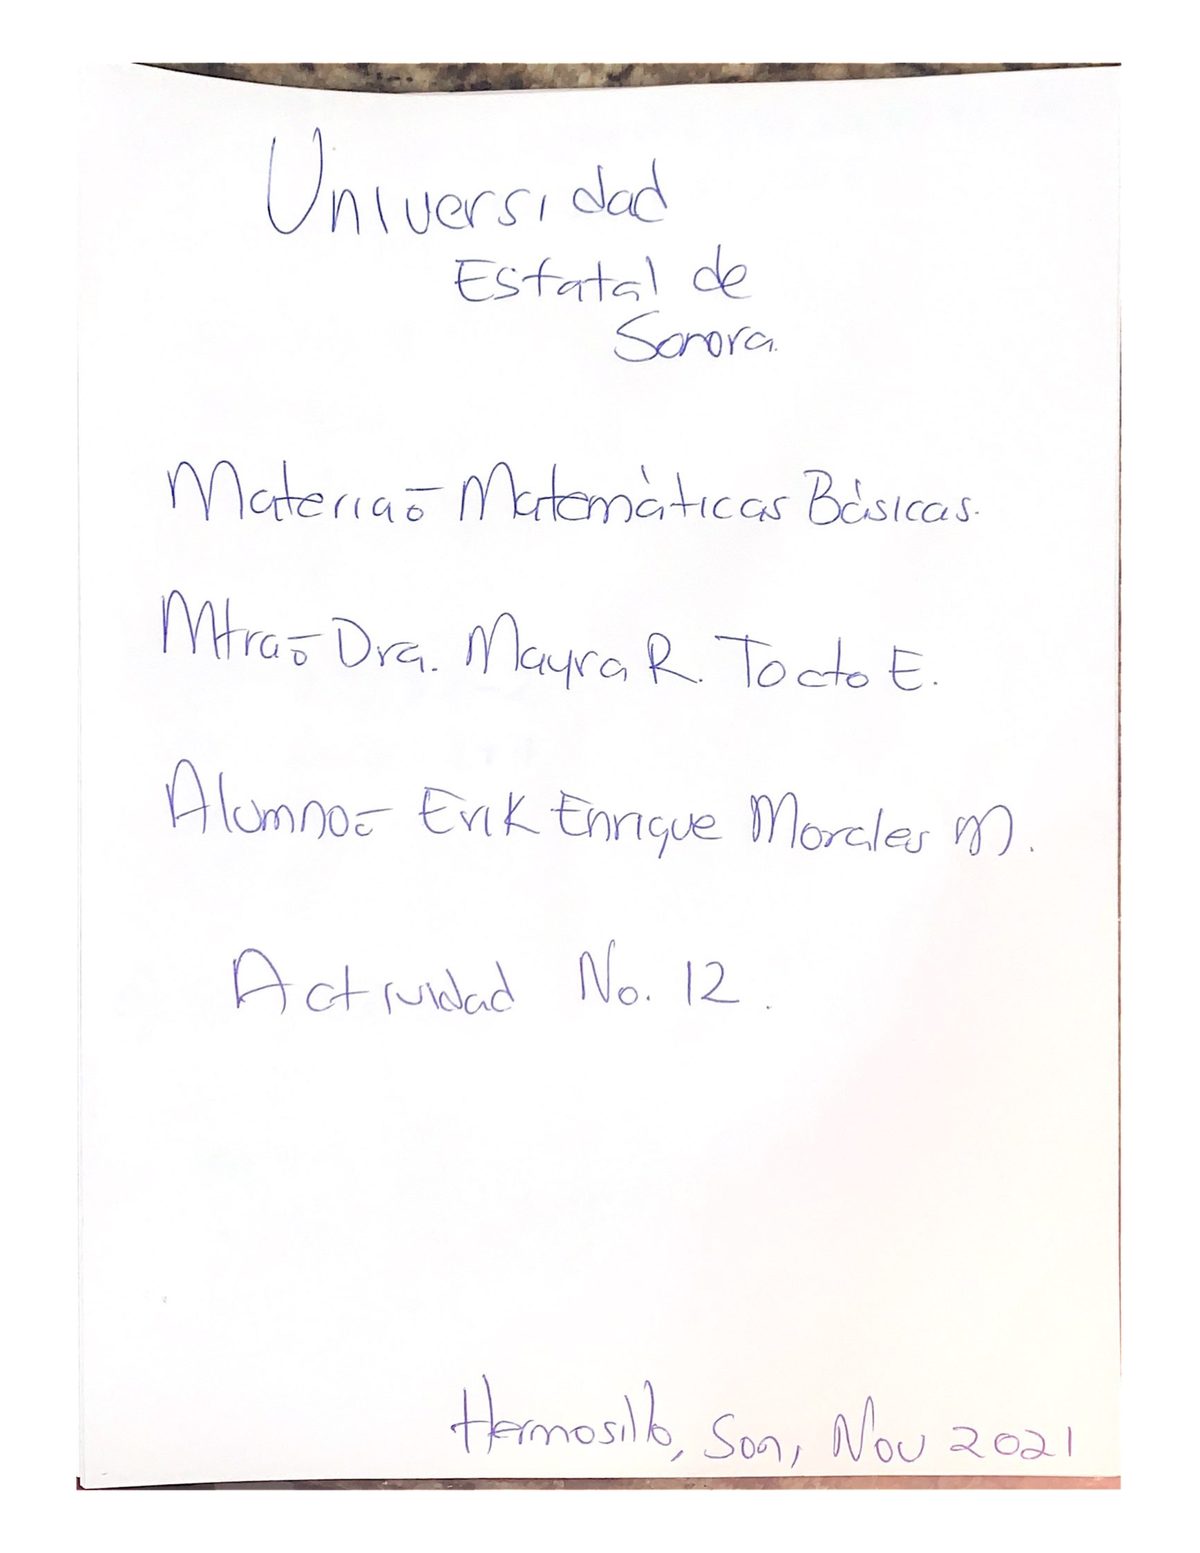 Universidad
Estatal de
Sonora.
Materia:- Matemáticas Básicas.
Mtra:- Dra. Mayra R. Tocto E.
Alumno:- Erik Enrique Morales M.
Actividad No. 12.
Hermosillo, Son, Nov 2021